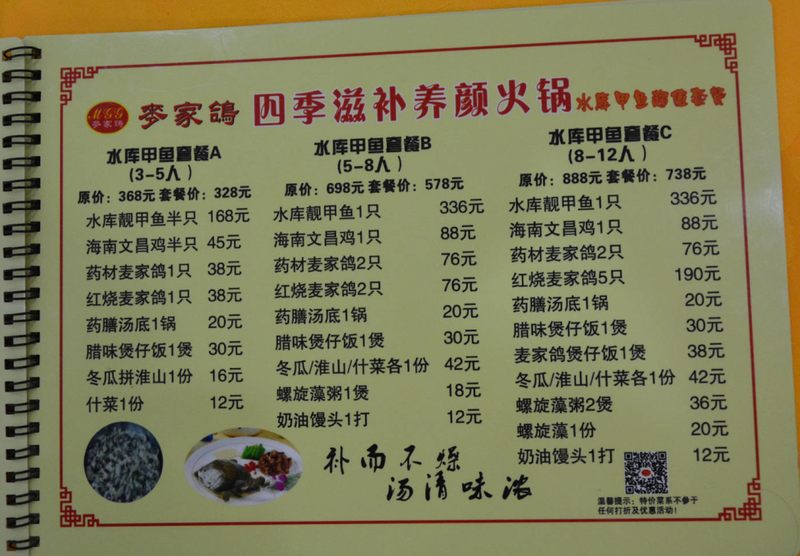 MGG
麥家鴿
麥家鴿
四季滋补养颜火锅
水库甲鱼超值套餐
水库甲鱼套餐A
(3-5人)
原价：368元 套餐价：328元
水库靓甲鱼半只 168元
海南文昌鸡半只 45元
药材麦家鸽1只 38元
红烧麦家鸽1只 38元
药膳汤底1锅 20元
腊味煲仔饭1煲 30元
冬瓜拼淮山1份 16元
什菜1份 12元
水库甲鱼套餐B
(5-8人)
原价：698元 套餐价：578元
水库靓甲鱼1只 336元
海南文昌鸡1只 88元
药材麦家鸽2只 76元
红烧麦家鸽2只 76元
药膳汤底1锅 20元
腊味煲仔饭1煲 30元
冬瓜/淮山/什菜各1份 42元
螺旋藻粥1煲 18元
奶油馒头1打 12元
水库甲鱼套餐C
(8-12人)
原价：888元 套餐价：738元
水库靓甲鱼1只 336元
海南文昌鸡1只 88元
药材麦家鸽2只 76元
红烧麦家鸽5只 190元
药膳汤底1锅 20元
腊味煲仔饭1煲 30元
麦家鸽煲仔饭1煲 38元
冬瓜/淮山/什菜各1份 42元
螺旋藻粥2煲 36元
螺旋藻1份 20元
奶油馒头1打 12元
补而不燥
汤清味浓
温馨提示：特价菜系不参于
任何打折及优惠活动！